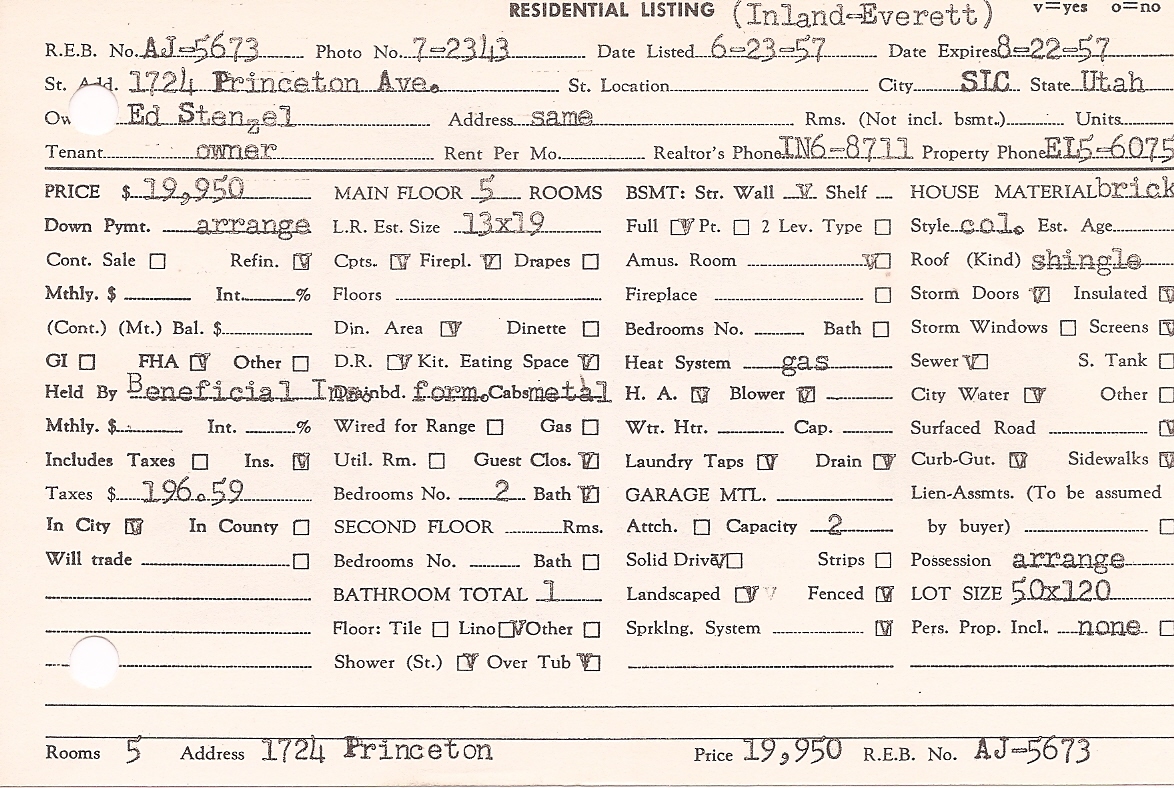 RESIDENTIAL LISTING (Inland-Everett) v=yes o=no
R.E.B. No. AJ-5673 Photo No. 7-2343 Date Listed 6-23-57 Date Expires 8-22-57
St. Add. 1724 Princeton Ave. St. Location City SLC State Utah
Ow Ed Stenzel Address same Rms. (Not incl. bsmt.) Units
Tenant owner Rent Per Mo. Realtor's Phone IN6-8711 Property Phone EL5-6075
PRICE $ 19,950 MAIN FLOOR 5 ROOMS BSMT: Str. Wall V Shelf HOUSE MATERIAL brick
Down Pymt. arrange L.R. Est. Size 13x19 Full V Pt. 2 Lev. Type Style col. Est. Age
Cont. Sale Refin. V Cpts. V Firepl. V Drapes Amus. Room V Roof (Kind) shingle
Mthly. $ Int. % Floors Fireplace Storm Doors V Insulated V
(Cont.) (Mt.) Bal. $ Din. Area V Dinette Bedrooms No. Bath Storm Windows Screens V
GI FHA V Other D.R. V Kit. Eating Space V Heat System gas Sewer V S. Tank
Held By Beneficial Ins. Drainbd. form. Cabs metal H. A. V Blower V City Water V Other
Mthly. $ Int. % Wired for Range Gas Wtr. Htr. Cap. Surfaced Road V
Includes Taxes Ins. V Util. Rm. Guest Clos. V Laundry Taps V Drain V Curb-Gut. V Sidewalks V
Taxes $ 196.59 Bedrooms No. 2 Bath V GARAGE MTL. Lien-Assmts. (To be assumed
In City V In County SECOND FLOOR Rms. Attch. Capacity 2 by buyer)
Will trade Bedrooms No. Bath Solid Drive V Strips Possession arrange
BATHROOM TOTAL 1 Landscaped V V Fenced V LOT SIZE 50x120
Floor: Tile Lino V Other Sprklng. System V Pers. Prop. Incl. none
Shower (St.) V Over Tub V
Rooms 5 Address 1724 Princeton Price 19,950 R.E.B. No. AJ-5673